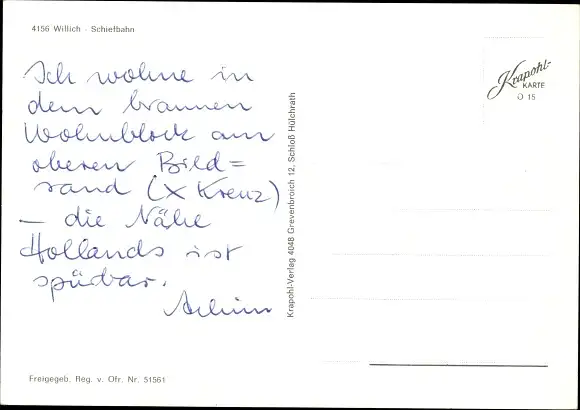 4156 Willich - Schiefbahn
Ich wohne in
dem braunen
Wohnblock am
oberen Bild=
rand (X Kreuz)
— die Nähe
Hollands ist
spürbar.
Achim
Freigegeb. Reg. v. Ofr. Nr. 51561
Krapohl-Verlag 4048 Grevenbroich 12, Schloß Hülchrath
Krapohl-
KARTE
O 15